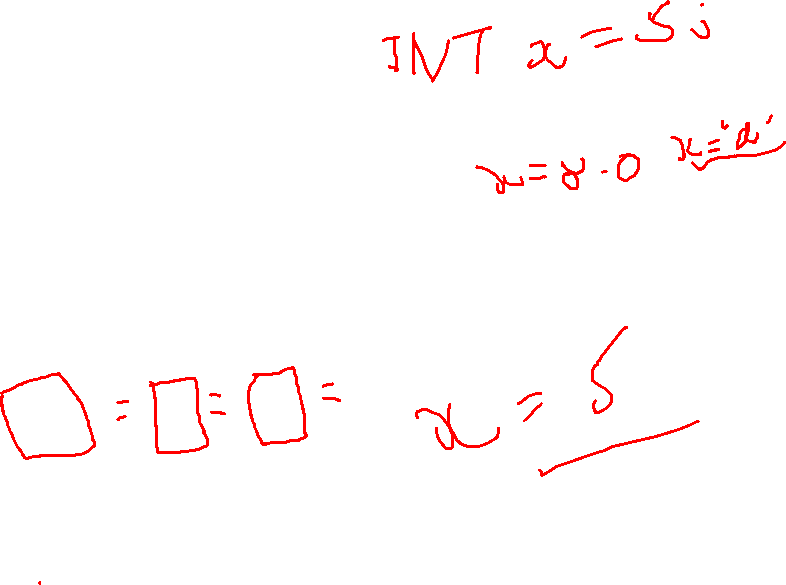 INT x = 5;
x = 8.0 x = 'a'
= = = x = 5